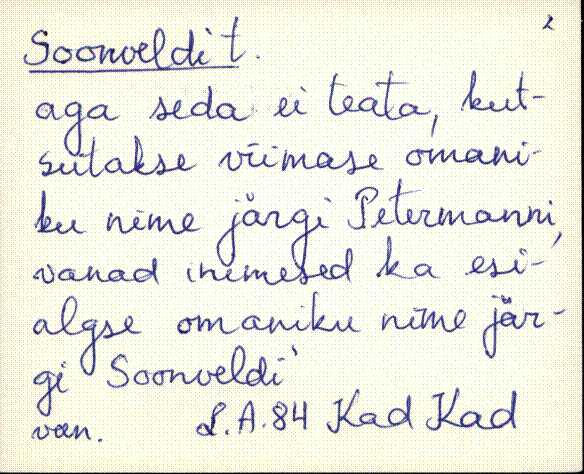 2
Soonveldi t.
aga seda ei teata, kut-
sutakse viimase omani-
ku nime järgi Petermanni,
vanad inimesed ka esi-
algse omaniku nime jär-
gi Soonveldi'
van. L.A.84 Kad Kad